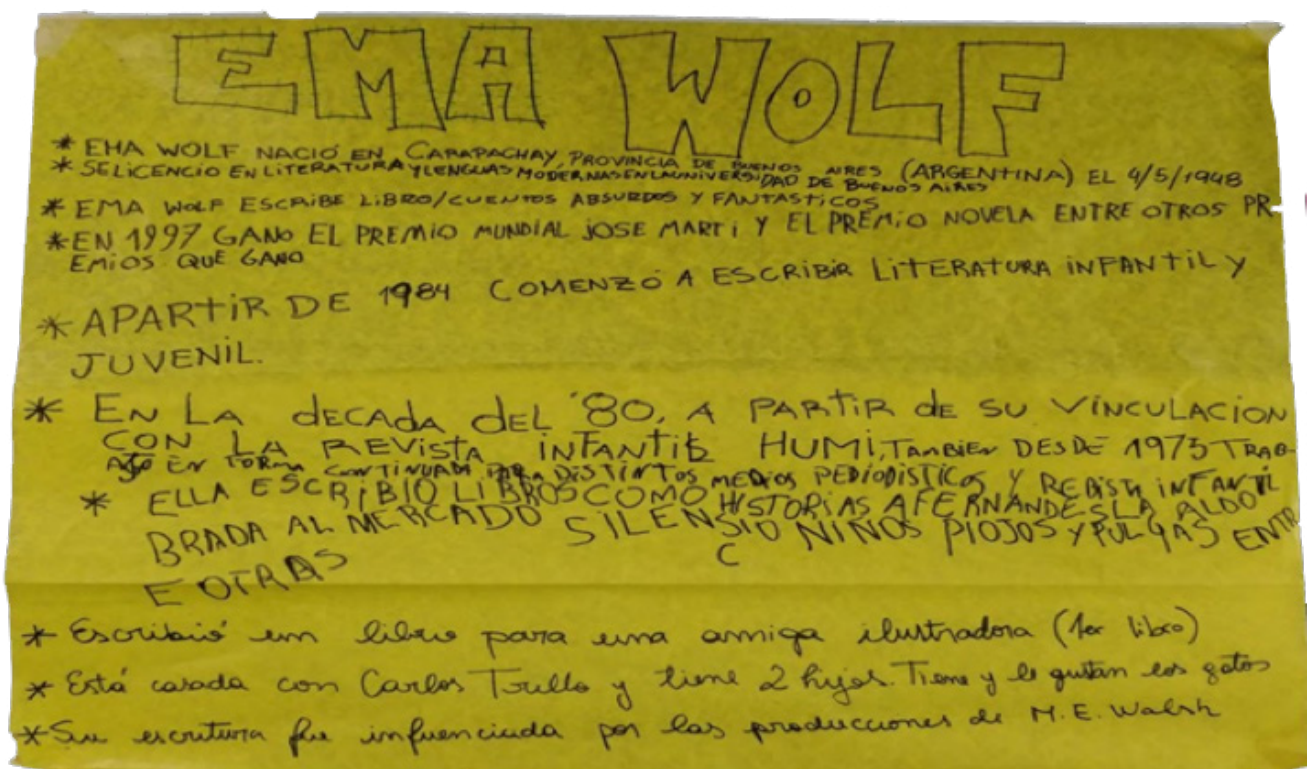 EMA WOLF
* EMA WOLF NACIÓ EN CARAPACHAY, PROVINCIA DE BUENOS AIRES (ARGENTINA) EL 4/5/1948
* SE LICENCIO EN LITERATURA Y LENGUAS MODERNAS EN LA UNIVERSIDAD DE BUENOS AIRES
* EMA WOLF ESCRIBE LIBRO/CUENTOS ABSURDOS Y FANTASTICOS
* EN 1997 GANO EL PREMIO MUNDIAL JOSE MARTI Y EL PREMIO NOVELA ENTRE OTROS PR-
EMIOS QUE GANO
* APARTIR DE 1984 COMENZÓ A ESCRIBIR LITERATURA INFANTIL Y
JUVENIL.
* EN LA decada del '80, A PARTIR de SU VINCULACION
CON LA REVISTA INFANTIL HUMI, TAMBIEN DESDE 1975 TRAB-
AJO EN FORMA CONTINUADA PARA DISTINTOS MEDIOS PEDIODISTICOS Y REBISTA INFANTIL
* ELLA ESCRIBIO LIBROS COMO HISTORIAS A FERNANDES LA ALDO
BRADA AL MERCADO SILENSIO NIÑOS PIOJOS Y PULGAS ENTR
C
E OTRAS
* Escribió un libro para una amiga ilustradora (1er libro)
* Está casada con Carlos Trullo y tiene 2 hijos. Tiene y le gustan los gatos
* Su escritura fue infuenciada por las producciones de M.E. Walsh